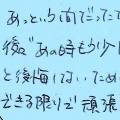 あっという間だったて
後で"あの時もう少し
と後悔しないため
できる限りで頑張